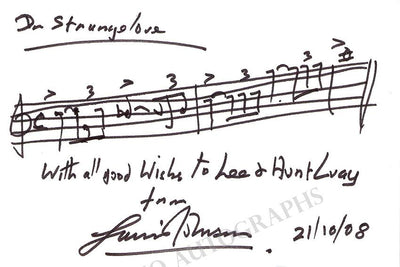 Dr Strangelove
3 3 3 3
With all good Wishes to Lee & Hunt
from
Laurie Johnson
21/10/08
AUTOGRAPHS